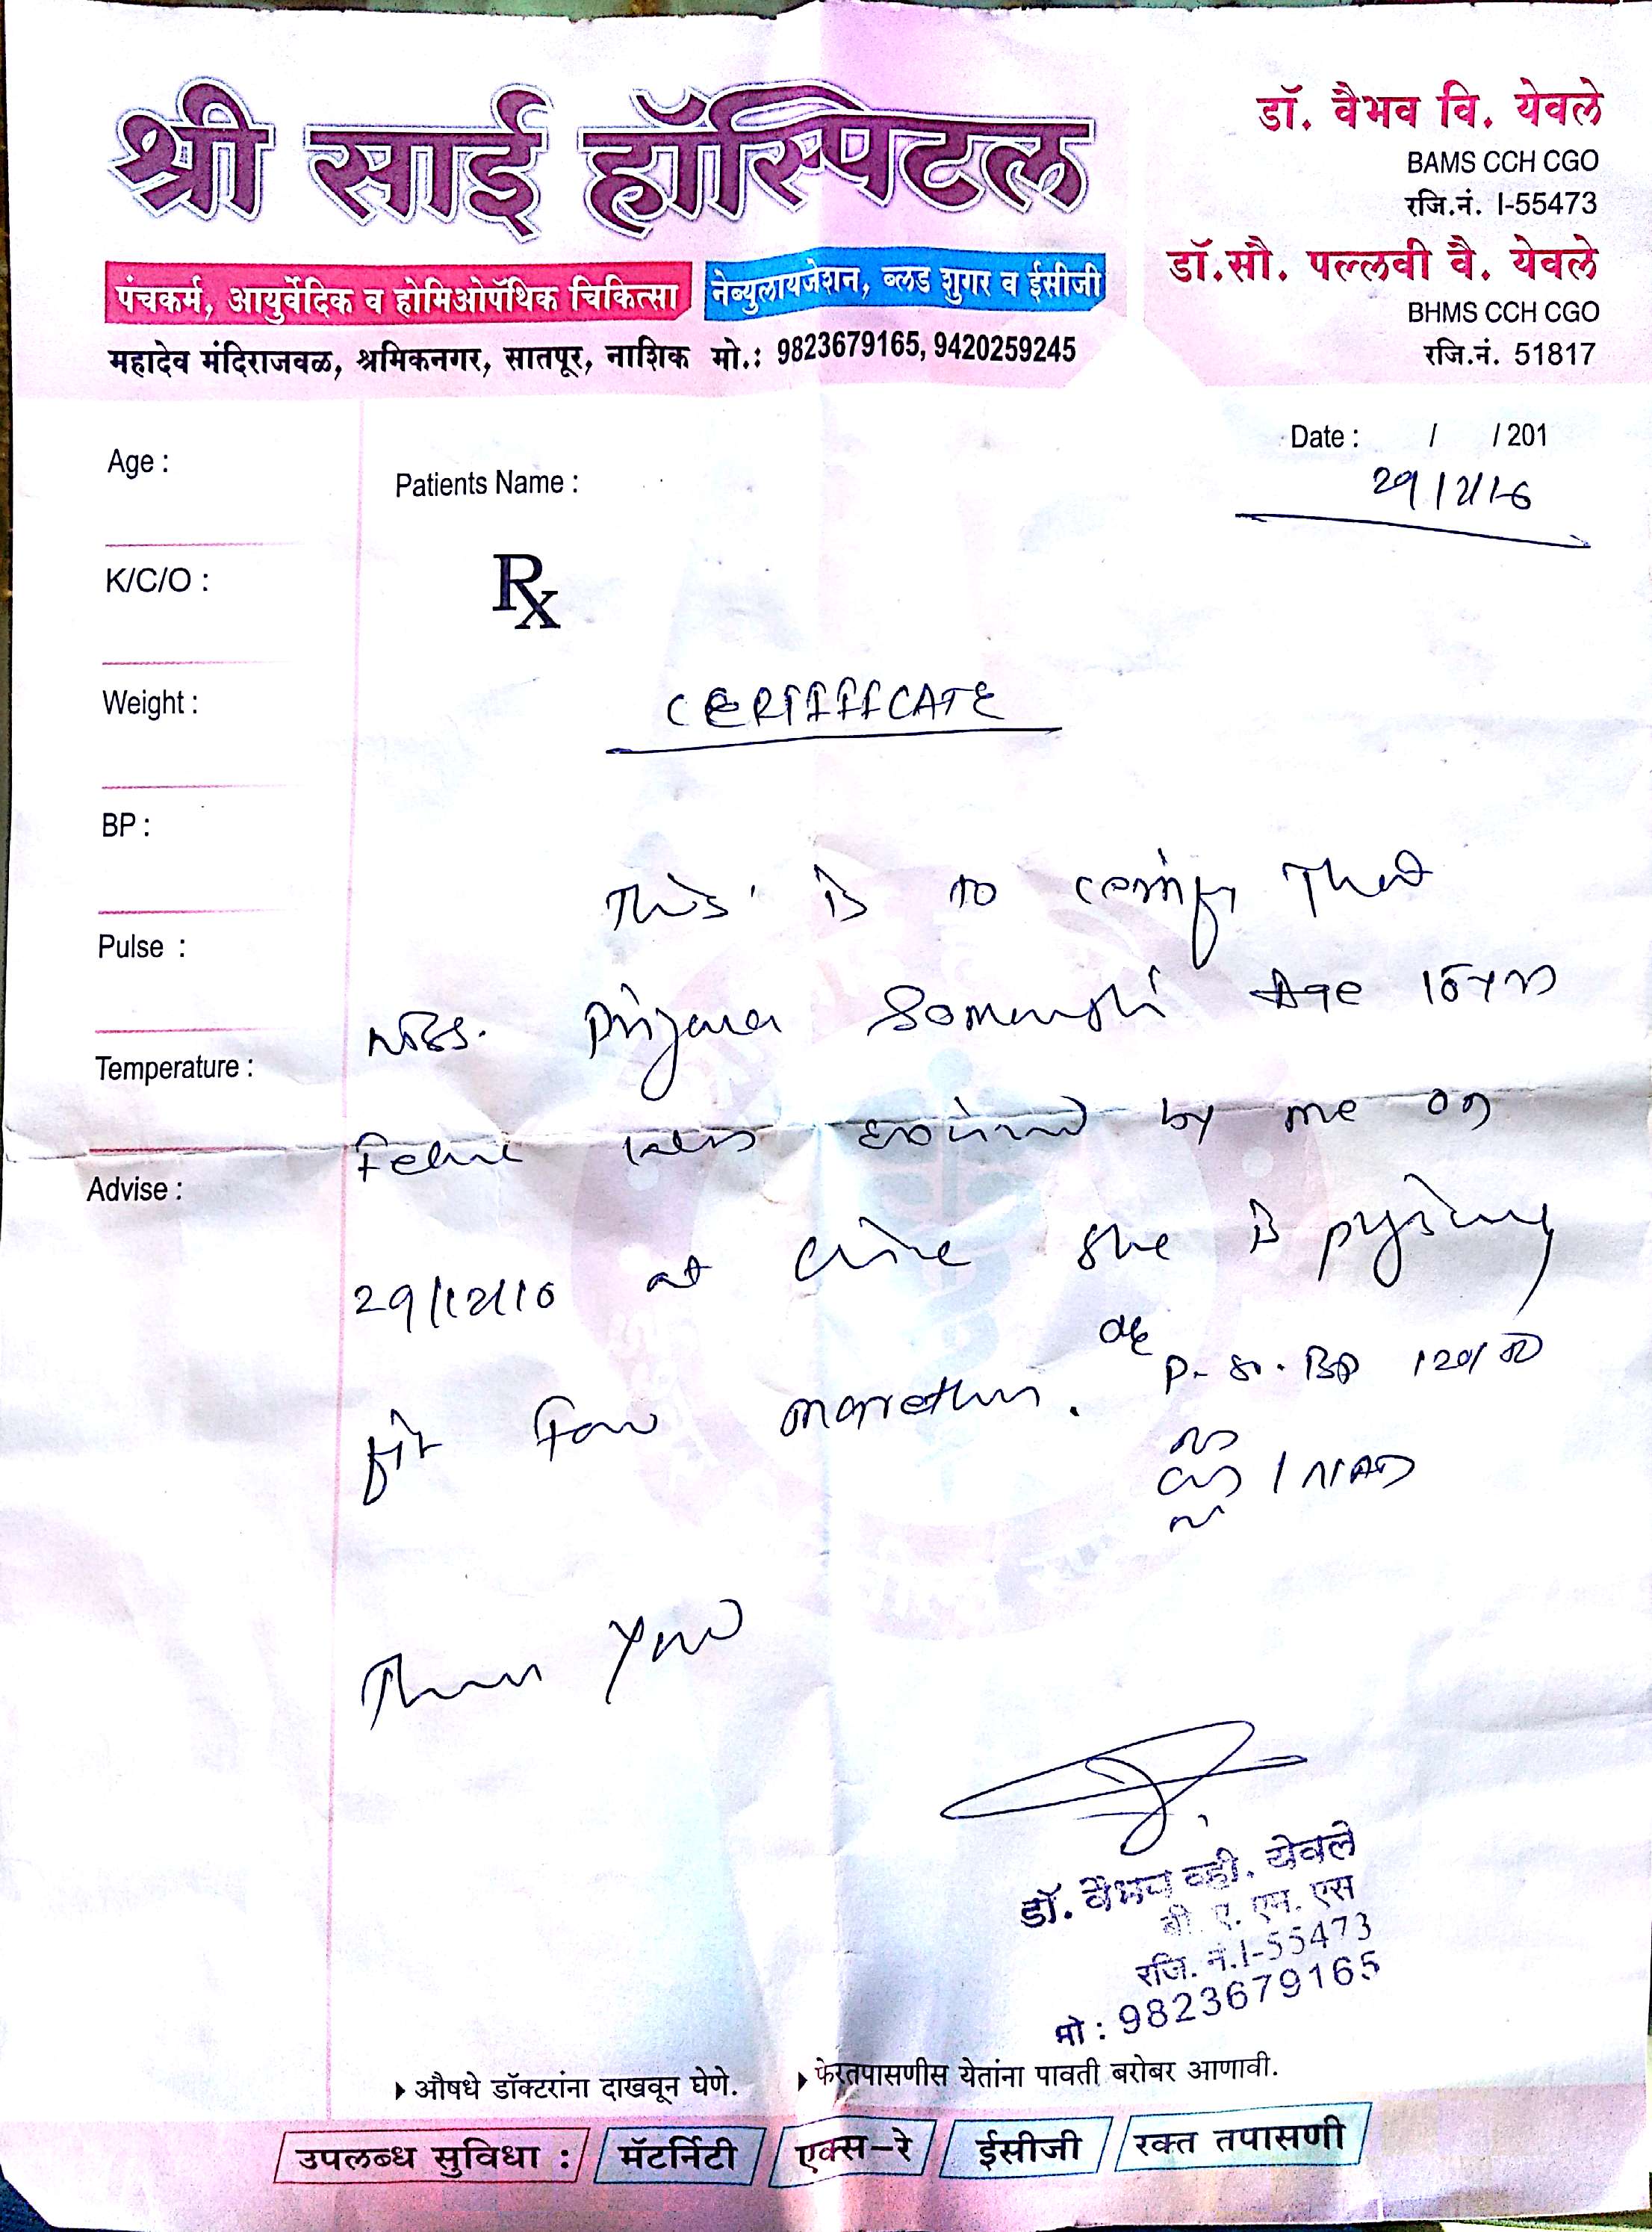 श्री साई हॉस्पिटल
पंचकर्म, आयुर्वेदिक व होमिओपॅथिक चिकित्सा
नेब्युलायजेशन, ब्लड शुगर व ईसीजी
महादेव मंदिराजवळ, श्रमिकनगर, सातपूर, नाशिक मो.: 9823679165, 9420259245
डॉ. वैभव वि. येवले
BAMS CCH CGO
रजि.नं. I-55473
डॉ.सौ. पल्लवी वै. येवले
BHMS CCH CGO
रजि.नं. 51817
Date : / / 201
Age :
Patients Name :
K/C/O :
Rx
Weight :
CERTIFICATE
BP :
This is to certify That
Pulse :
Age
Temperature :
by me on
Advise :
at she is
fit for marathon.
P- BP
Thank You
डॉ. वैभव व्ही. येवले
बी. ए. एम. एस
रजि. नं.I-55473
मो : 9823679165
औषधे डॉक्टरांना दाखवून घेणे. फेरतपासणीस येतांना पावती बरोबर आणावी.
उपलब्ध सुविधा : मॅटर्निटी एक्स-रे ईसीजी रक्त तपासणी